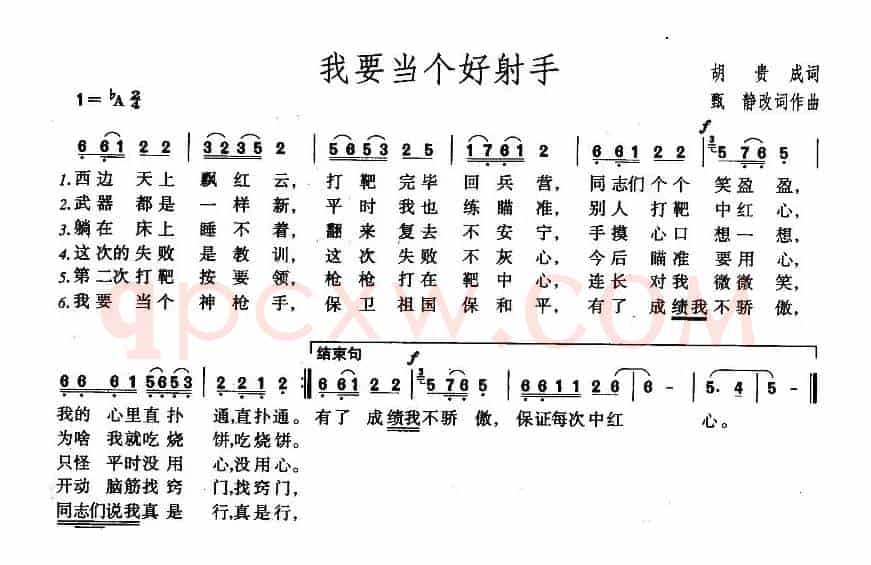 我要当个好射手
胡 贵 成词
1=♭A 2/4
甄 静改词作曲
f
6 6 1 2 2 | 3 2 3 5 2 | 5 6 5 3 2 5 | 1 7 6 1 2 | 6 6 1 2 2 | 5 7 6 5
1.西边 天上 飘红云, 打 靶 完毕 回兵营, 同志们个个 笑盈盈,
2.武器 都是 一样新, 平时 我也 练瞄准, 别人 打靶 中红心,
3.躺在 床上 睡不着, 翻来 复去 不安宁, 手摸 心口 想一想,
4.这次的失败 是教训, 这次 失败 不灰心, 今后 瞄准 要用心,
5.第二次打靶 按要领, 枪枪 打在 靶中心, 连长 对我 微微笑,
6.我要 当个 神枪手, 保卫 祖国 保和平, 有了 成绩我不骄傲,
结束句
f
6 6 6 1 5 6 5 3 | 2 2 1 2 :| 6 6 1 2 2 | 5 7 6 5 | 6 6 1 1 2 6 | 6 - | 5. 4 | 5 - ‖
我的 心里直扑 通,直扑通。 有了 成绩我不骄 傲, 保证每次中红 心。
为啥 我就吃烧 饼,吃烧饼。
只怪 平时没用 心,没用心。
开动 脑筋找窍 门,找窍门,
同志们说我真是 行,真是行,
qpcxw.com